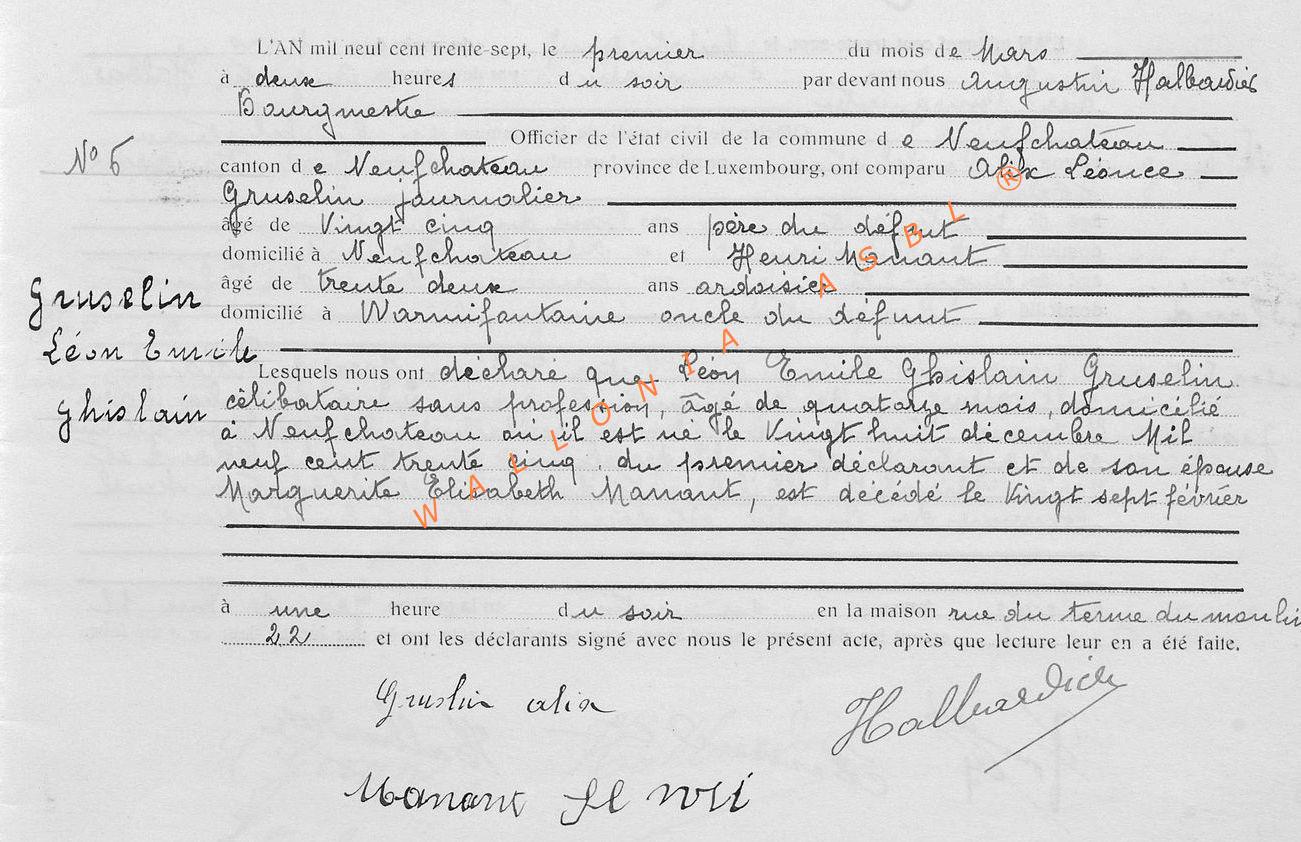 L'AN mil neuf cent trente-sept, le premier du mois de Mars
à deux heures du soir par devant nous Augustin Halbardier
Bourgmestre
Officier de l'état civil de la commune de Neufchateau
N° 5
canton de Neufchateau province de Luxembourg, ont comparu Alix Léonce
Gruselin journalier
âgé de Vingt cinq ans père du défunt
domicilié à Neufchateau et Henri Manant
âgé de trente deux ans ardoisier
domicilié à Warmifontaine oncle du défunt
Gruselin
Léon Emile
Ghislain
Lesquels nous ont déclaré que Léon Emile Ghislain Gruselin
célibataire sans profession, âgé de quatorze mois, domicélié
à Neufchateau où il est né le Vingt huit décembre Mil
neuf cent trente cinq. du premier déclarant et de son épouse
Marguerite Elisabeth Manant, est décédé le Vingt sept février
à une heure du soir en la maison rue du terme du moulin
22 et ont les déclarants signé avec nous le présent acte, après que lecture leur en a été faite.
Gruslin alix
Halbardier
Manant Henri
WALLONIA ASBL ®